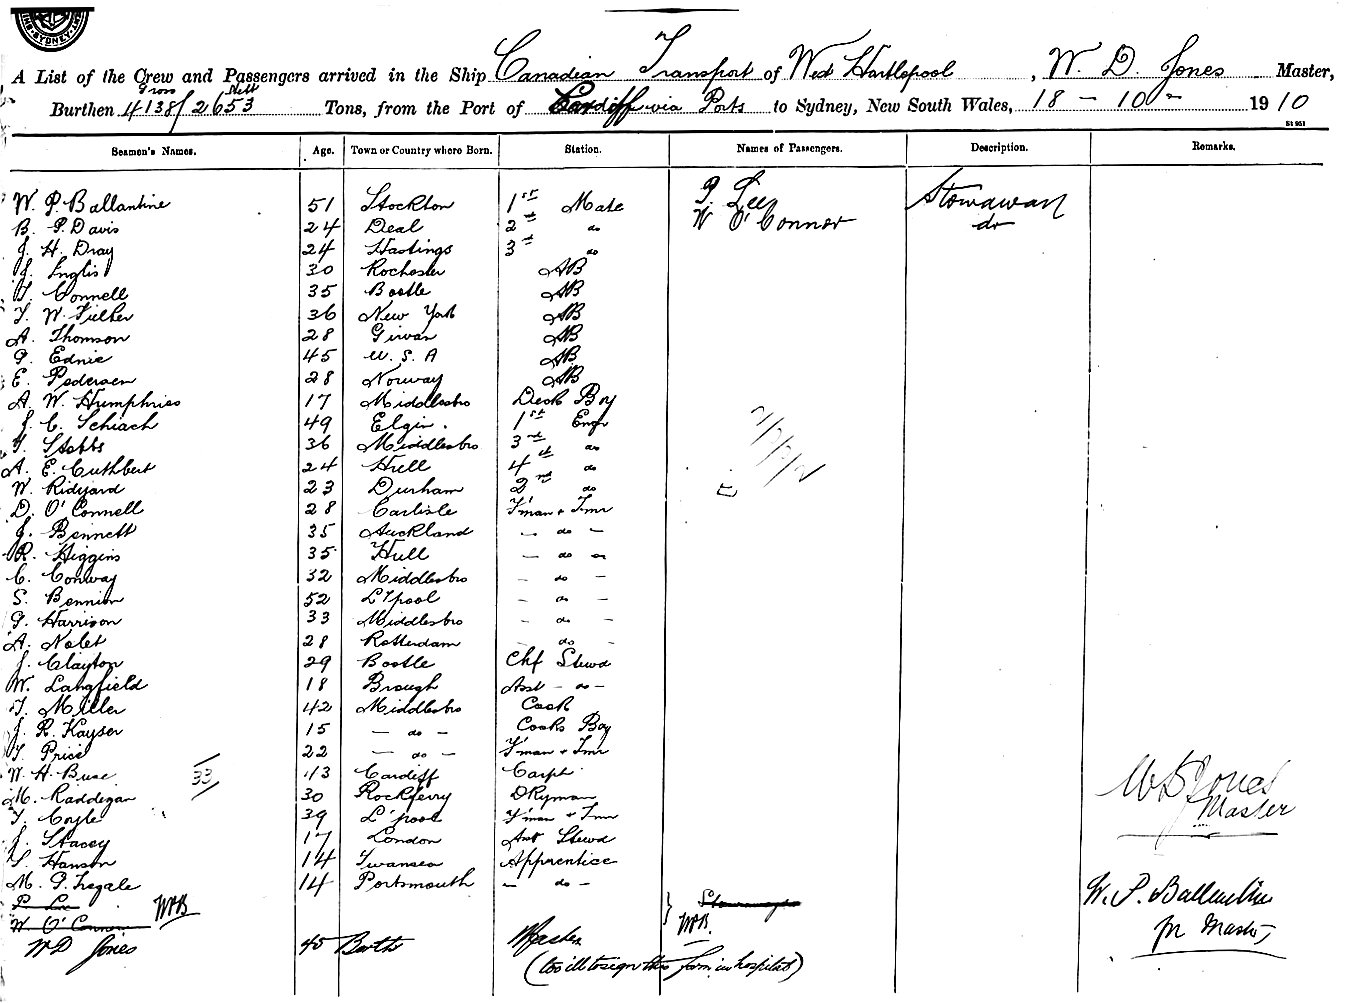 A List of the Crew and Passengers arrived in the Ship Canadian Transport of West Hartlepool, W. D. Jones Master,
Gross Nett
Burthen 4138/2653 Tons, from the Port of Cardiff via Ports to Sydney, New South Wales, 18 - 10 - 1910
Seamen's Names. Age. Town or Country where Born. Station. Names of Passengers. Description. Remarks.
W. P. Ballantine 51 Stockton 1st Mate P. Lee Stowaway
B. P. Davis 24 Deal 2nd do W O'Connor do
J. H. Dray 24 Hastings 3rd do
J. Inglis 30 Rochester AB
T. Connell 35 Bootle AB
T. W. Fulher 36 New York AB
A. Thomson 28 Girvan AB
G. Ednie 45 U. S. A AB
E. Pedersen 28 Norway AB
A. W. Humphries 17 Middlesbro Deck Boy
J. C. Schiach 49 Elgin. 1st Engr
T. Stobbs 36 Middlesbro 3rd do
A. E. Cuthbert 24 Hull 4th do
W. Ridyard 23 Durham 2nd do
D. O'Connell 28 Carlisle F'man + Tmr
J. Bennett 35 Auckland - do -
R. Higgins 35 Hull - do -
C. Conway 32 Middlesbro - do -
S. Bennion 52 L'pool - do -
G. Harrison 33 Middlesbro - do -
A. Nolet 28 Rotterdam - do -
J. Clayton 29 Bootle Chf Stewd
W. Langfield 18 Brough Asst - do -
T. Miller 42 Middlesbro Cook
J. R. Kayser 15 - do - Cooks Boy
T. Price 22 - do - F'man + Tmr
W. H. Buse 43 Cardiff Carptr
33
M. Raddigan 30 Rockferry DKyman
T. Coyle 39 L'pool F'man + Tmr
J. Stacey 17 London Asst Stewd
S. Hanson 14 Swansea Apprentice
M. G. Tregale 14 Portsmouth - do -
P. Lee
W. O'Connor WPB Stowaways WPB.
W D Jones 45 Barth Master
(too ill to sign this form in hospital)
W D Jones
Master
W. P. Ballantine
for Master